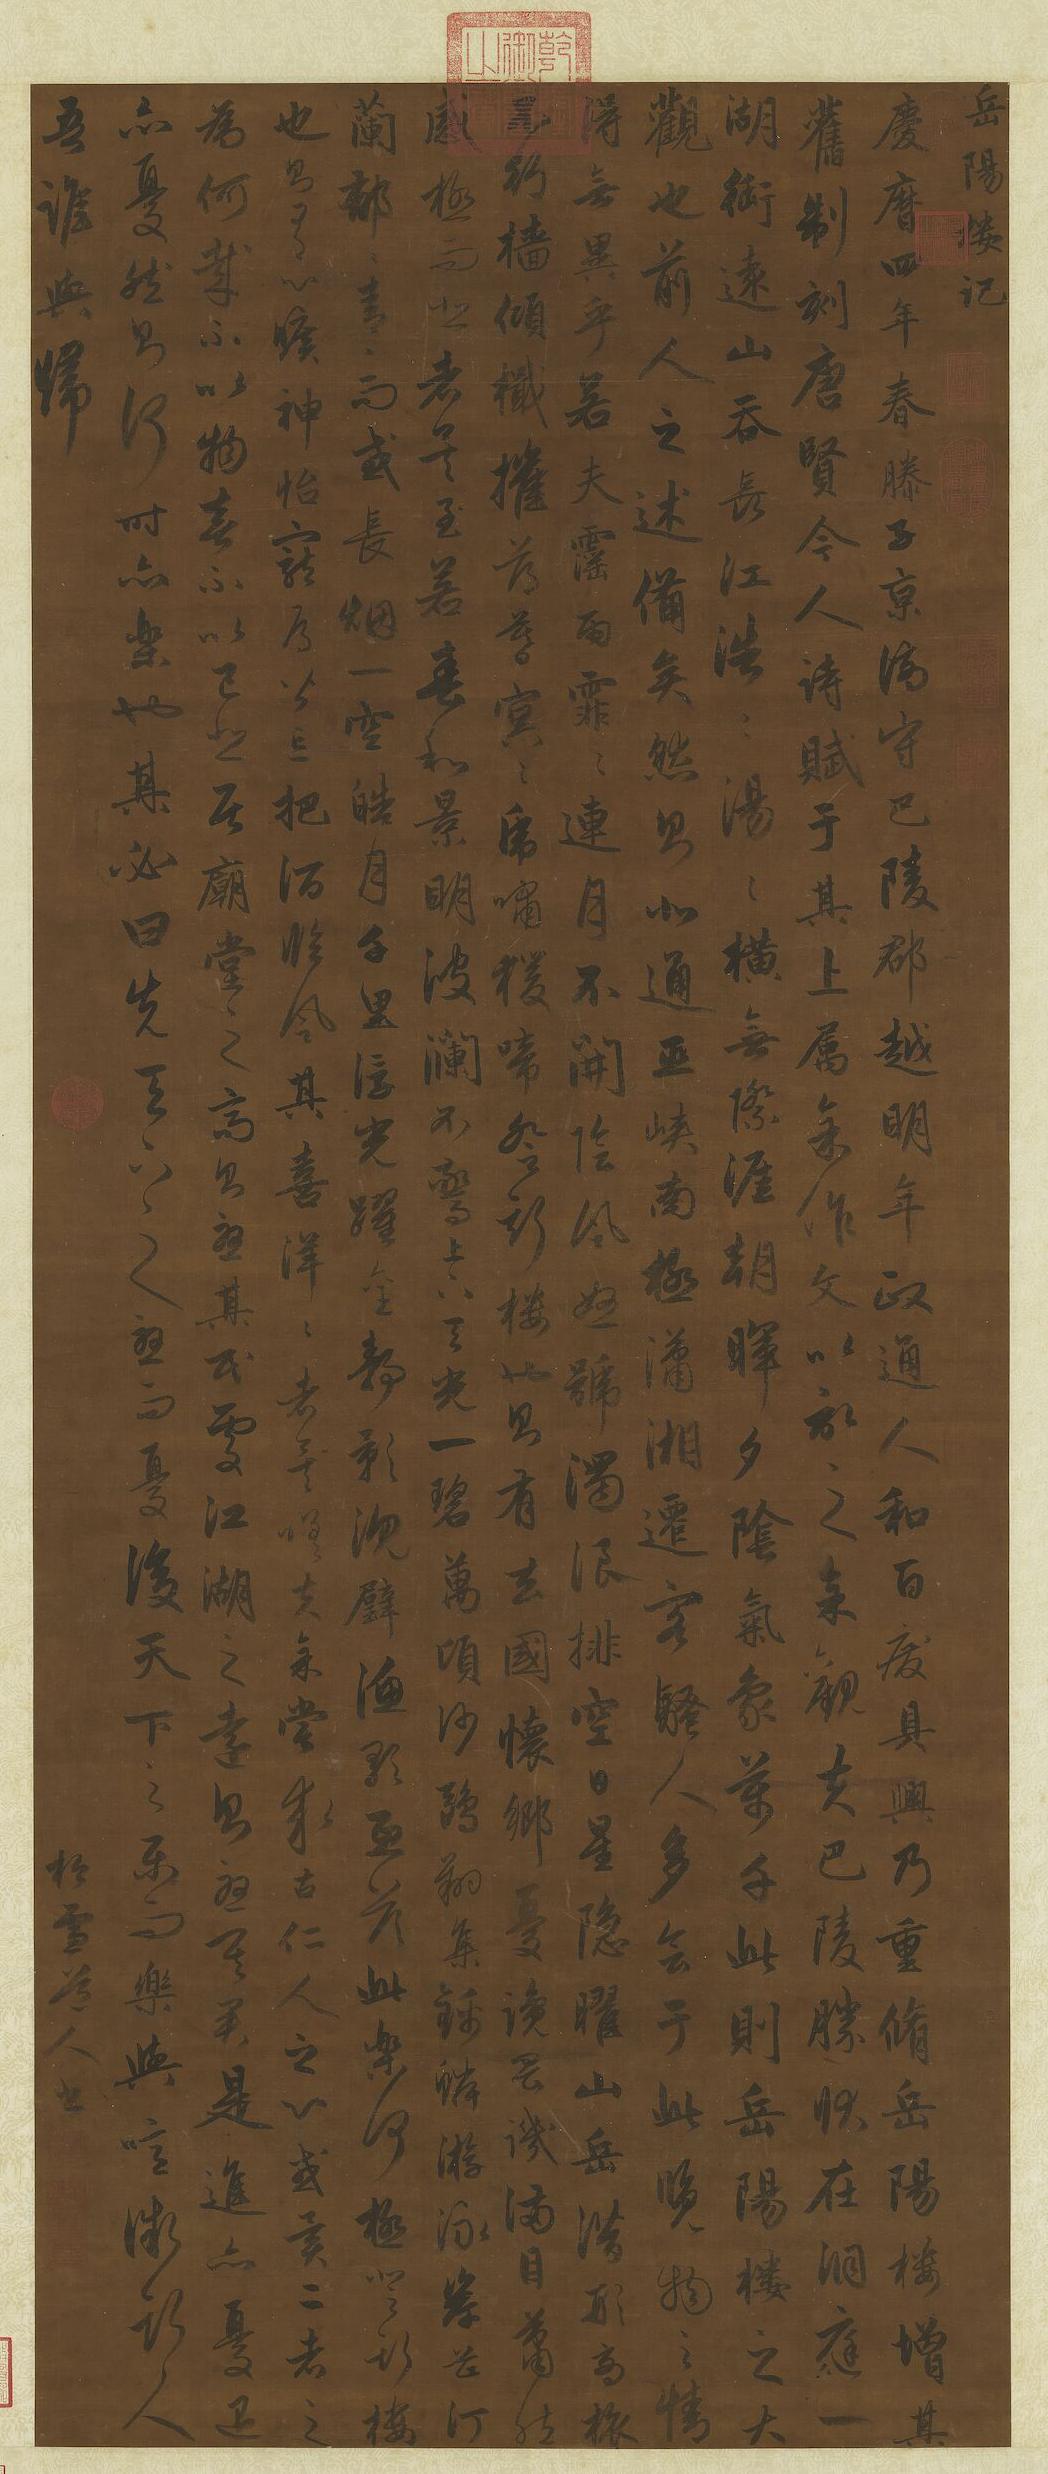 岳陽樓記
慶曆四年春滕子京謫守巴陵郡越明年政通人和百廢具興乃重脩岳陽樓增其
舊制刻唐賢今人詩賦于其上属余作文以記之余觀夫巴陵勝狀在洞庭一
湖銜遠山吞長江浩〻湯〻橫無際涯朝暉夕陰氣象萬千此則岳陽樓之大
觀也前人之述備矣然則北通巫峽南極瀟湘遷客騷人多会于此覽物之情
得無異乎若夫霪雨霏〻連月不開陰風怒號濁浪排空日星隐曜山岳潛形商旅
不行檣傾檝摧薄暮冥〻虎嘯猿啼登斯樓也則有去國懷鄉憂讒畏譏滿目蕭然
感極而悲者矣至若春和景明波瀾不驚上下天光一碧萬頃沙鷗翔集錦鱗游泳岸芷汀
蘭郁〻青〻而或長烟一空皓月千里浮光躍金静影沉璧漁歌互荅此樂何極登斯樓
也則有心曠神怡寵辱皆忘把酒臨風其喜洋〻者矣嗟夫余嘗求古仁人之心或異二者之
為何哉不以物喜不以己悲居廟堂之高則憂其民處江湖之遠則憂其君是進亦憂退
亦憂然則何時亦樂也其必曰先天下之人憂而憂後天下之樂而樂與噫微斯人
吾誰與歸
松雪道人書